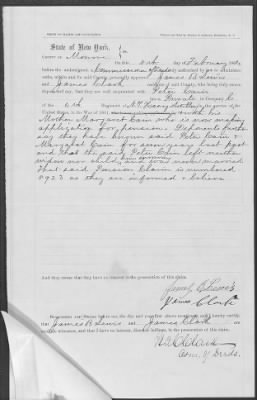 State of New York,
County of Monroe
On this 8th day of February 186
before the undersigned, a Commissioner of Deeds duly authorized by law to administer
oaths within and for said County, personally appeared James B Lewis
and James Clark of said County, who being duly sworn
depose and say, that they are well acquainted with Peter Cain
was Private in Company L
of the 6th Regiment N.Y. Heavy Artillery
United States, in the War of 1861, with his
Mother Margaret Cain who is now making
application for pension. Deponents further
say they have known said Peter Cain &
Margaret Cain for some years last past
and that the said Peter Cain left neither
widow nor child and was never married
That said Pension Claim is numbered
as they are informed & believe
And they swear that they have no interest in the prosecution of this claim.
James B Lewis
James Clark
Sworn to and subscribed before me, the day and year first above mentioned, and I hereby certify
that James B Lewis and James Clark are
credible witnesses, and that I have no interest, direct or indirect, in the prosecution of this claim.
Clark
Com. of Deeds.